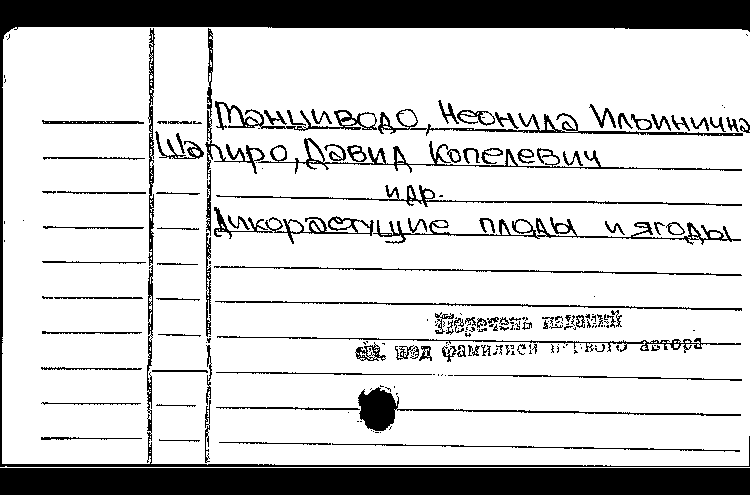 Манциводо, Неонила Ильинична
Шапиро, Давид Копелевич
и др.
Дикорастущие плоды и ягоды
Перечень изданий
см. под фамилией первого автора